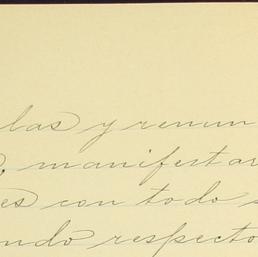 las y renun
, manifestar
es con todo
ndo respecto